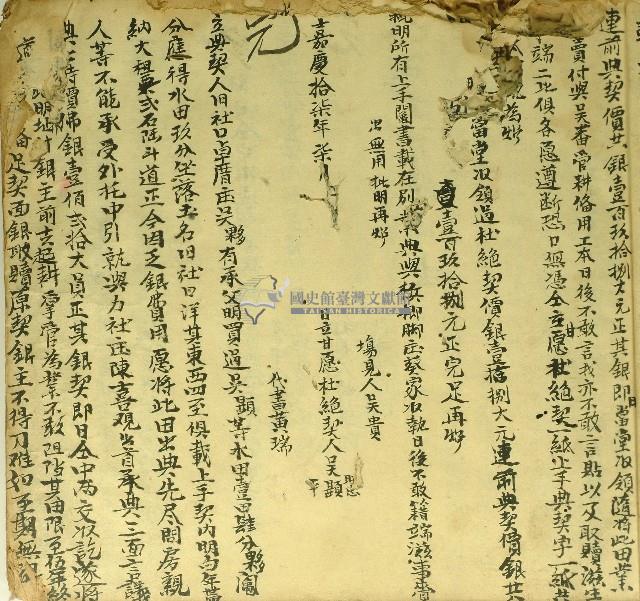 連前典契價共銀壹百玖拾捌大元正其銀即日當堂收領隨將此田業
賣付與吳番官耕俻用工本日後不敢言找亦不敢言貼以及取贖滋生
端二比俱各愿遵斷恐口無憑仝立甘愿杜絕契一紙上手典契字一紙共
為炤
當堂收領過杜絕契價銀壹拾捌大元連前典契價銀共
壹百玖拾捌元正完足再炤
批明所有上手鬮書載在別業典與
家收執日後不敢籍端滋事齊
出無用批明再炤
場見人吳貴
嘉慶拾柒年柒
日立甘愿杜絕契人吳顯
代書黃瑞
國史館臺灣文獻館
TAIWAN HISTORICA
立典契人旧社口卓厝庄吳夥有承父明買過吳顯等水田壹甲肆分夥鬮
分應得水田玖分坐落土名旧社口洋其東西四至俱載上手契內明白年帶
納大租粟弍石陸斗道正今因乏銀費用愿將此田出典先尽問房親
人等不能承受外托中引就與力社庄陳喜觀出首承典三面言議
典時價佛銀壹佰弍拾大員正其銀契即日仝中兩交收訖遂將
明址付銀主前去起耕掌管為業不敢阻佔其田限至伍年終
俻足契面銀取贖原契銀主不得刁难如至期無